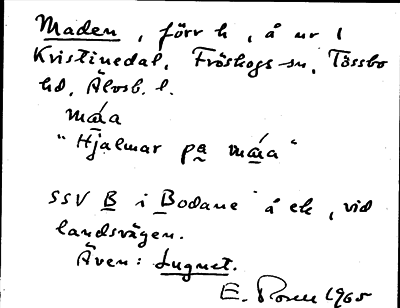 Maden, förr h, å nr 1
Kristinedal, Fröskogs sn, Tössbo
hd, Älvsb. l.
māŕa
"Hjalmar pa māŕa"
SSV B i Bodane å ek, vid
landsvägen.
Även: Lugnet.
E. Rosen 1965